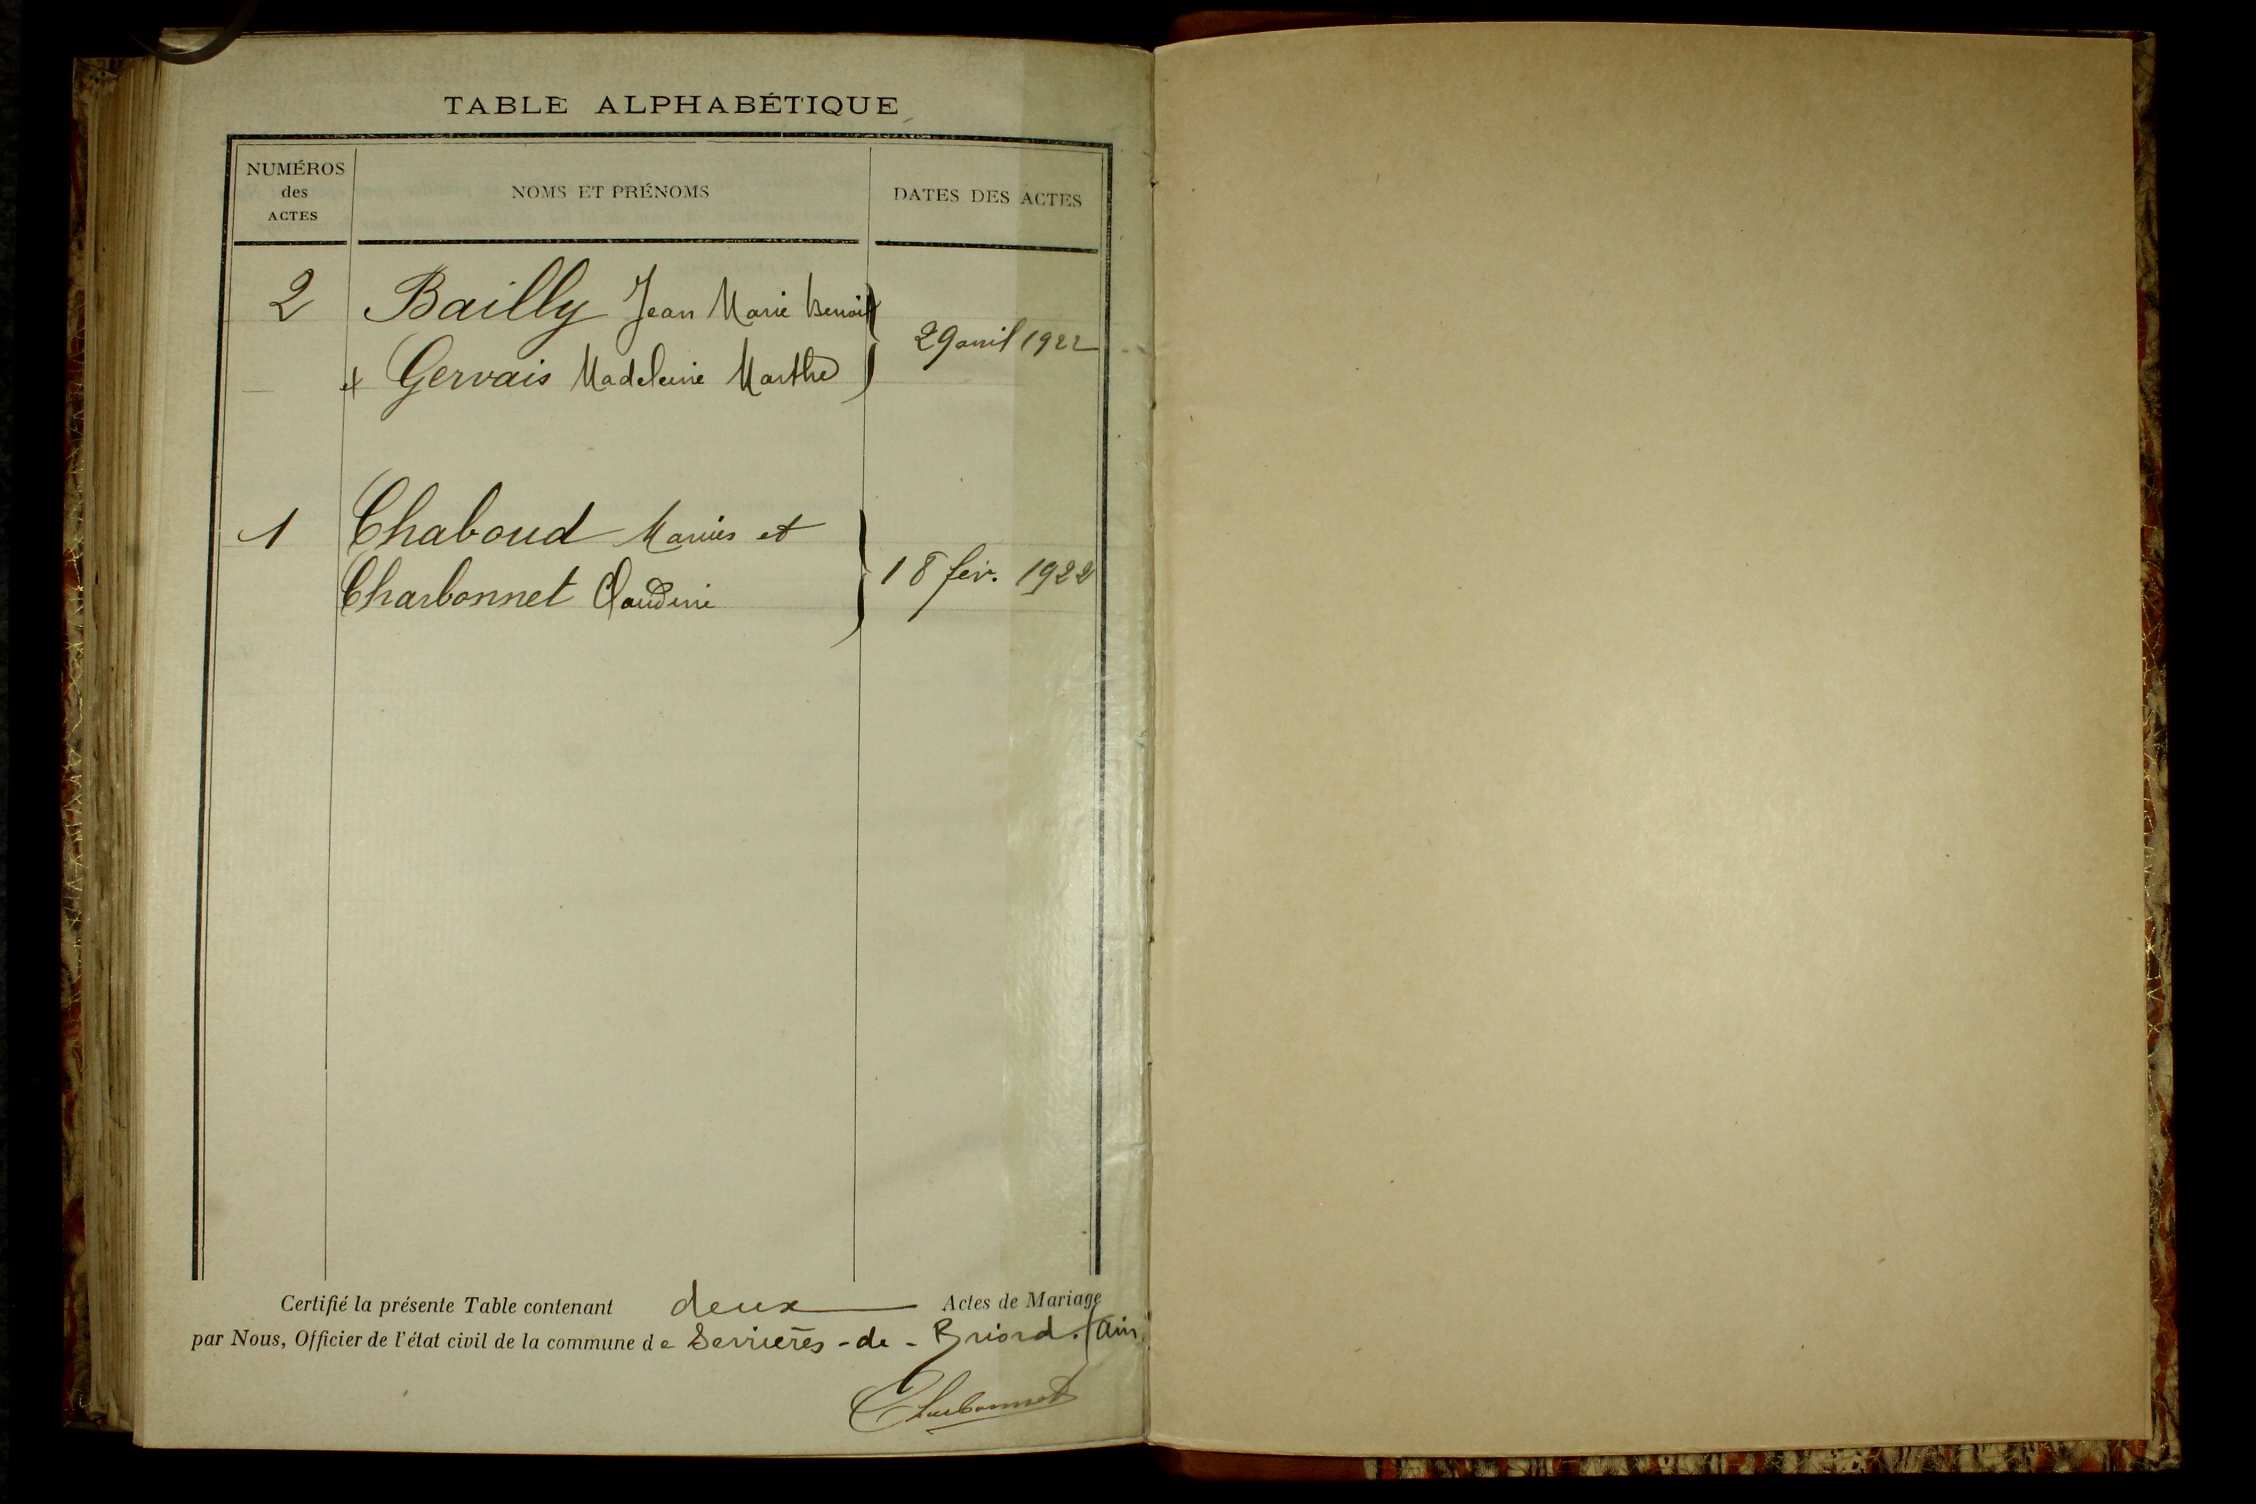 TABLE ALPHABÉTIQUE
NUMÉROS
des
ACTES
NOMS ET PRÉNOMS
DATES DES ACTES
2 Bailly Jean Marie Benoit
29 avril 1922
et Gervais Madeleine Marthe
1 Chaboud Marius et
18 fév. 1922
Charbonnet Claudine
Certifié la présente Table contenant deux Actes de Mariage
par Nous, Officier de l'état civil de la commune de Serrières-de-Briord. (Ain
Charbonnet